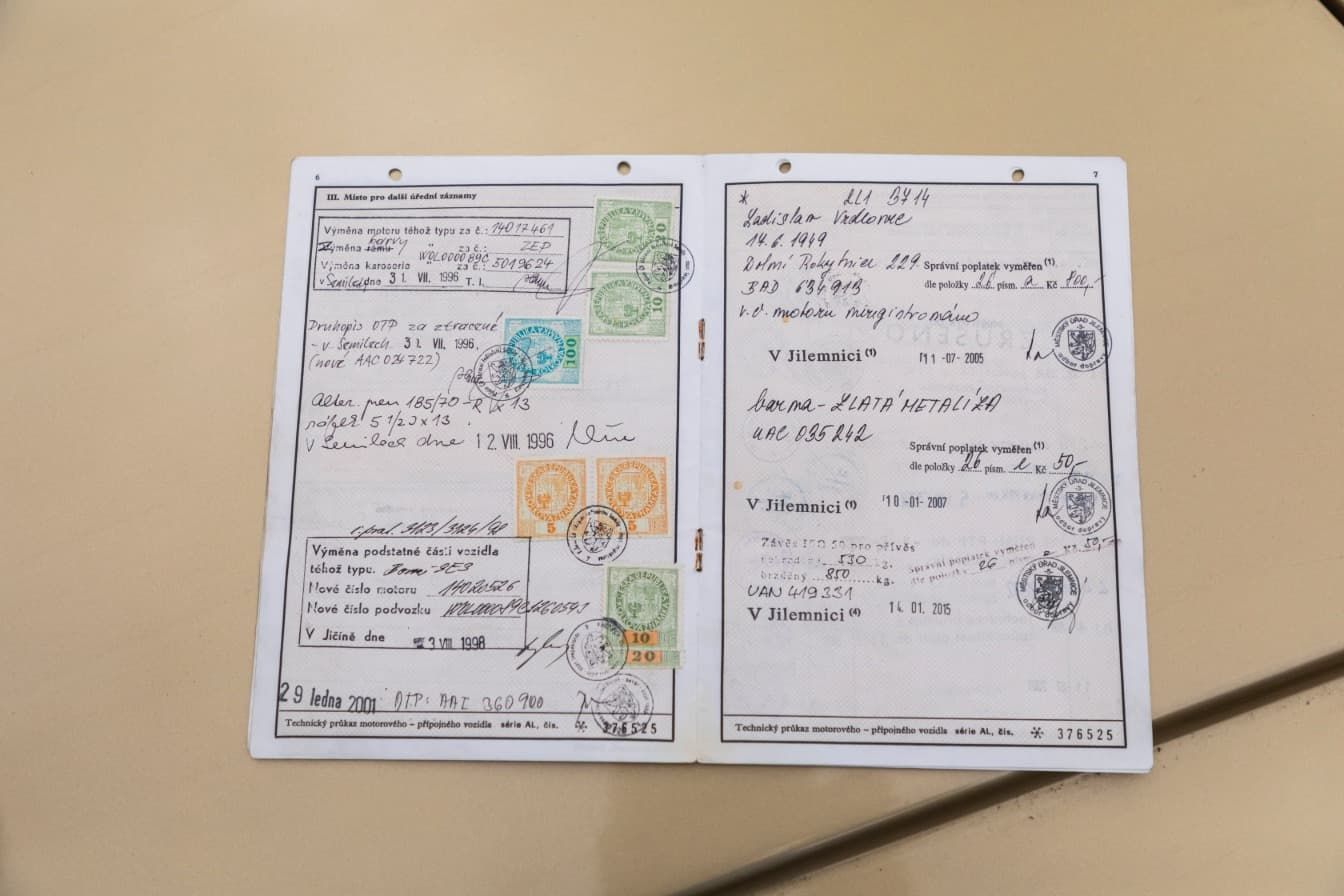 6
III. Místo pro další úřední záznamy
Výměna motoru téhož typu za č.: 14017461
barvy
Výměna rámu " za č.: ZEP
W0L000089C
Výměna karoserie za č.: 5019624
v Semilech dne 3 1. VII. 1996 T. I.
20
10
Druhopis OTP za ztracené
- v Semilech 3 1. VII. 1996.
(nové AAC 034722)
100
Alter. pneu 185/70-R x 13
ráfek 5 1/2J x 13.
V Semilech dne 1 2. VIII. 1996
5
5
Výměna podstatné části vozidla
téhož typu.
Nové číslo motoru 14020526
Nové číslo podvozku
V Jičíně dne 3 VIII. 1998
10
20
29 ledna 2001 OTP: AAI 360900
Technický průkaz motorového – přípojného vozidla série AL, čís. 376525
7
* 2L1 3714
Ladislav
14. 6. 1949
Dolní Rokytnice 229. Správní poplatek vyměřen (1)
dle položky 26 písm. a Kč 800,-
BAD 634913
v. č. motoru neregistrováno
V Jilemnici (1) 11 -07- 2005
MĚSTSKÝ ÚŘAD JILEMNICE
odbor dopravy
barva - ZLATÁ METALÍZA
UAC 035242
Správní poplatek vyměřen (1)
dle položky 26 písm. e Kč 50,-
V Jilemnici (1) 10 -01- 2007
MĚSTSKÝ ÚŘAD JILEMNICE
odbor dopravy
Závěs ISO 50 pro přívěs
nebrzděný 530 kg.
brzděný 850 kg.
Správní poplatek vyměřen
dle položky 26 e Kč 50,-
UAN 419331
V Jilemnici (4) 14. 01. 2015
MĚSTSKÝ ÚŘAD JILEMNICE
odbor dopravy
Technický průkaz motorového – přípojného vozidla série AL, čís. 376525